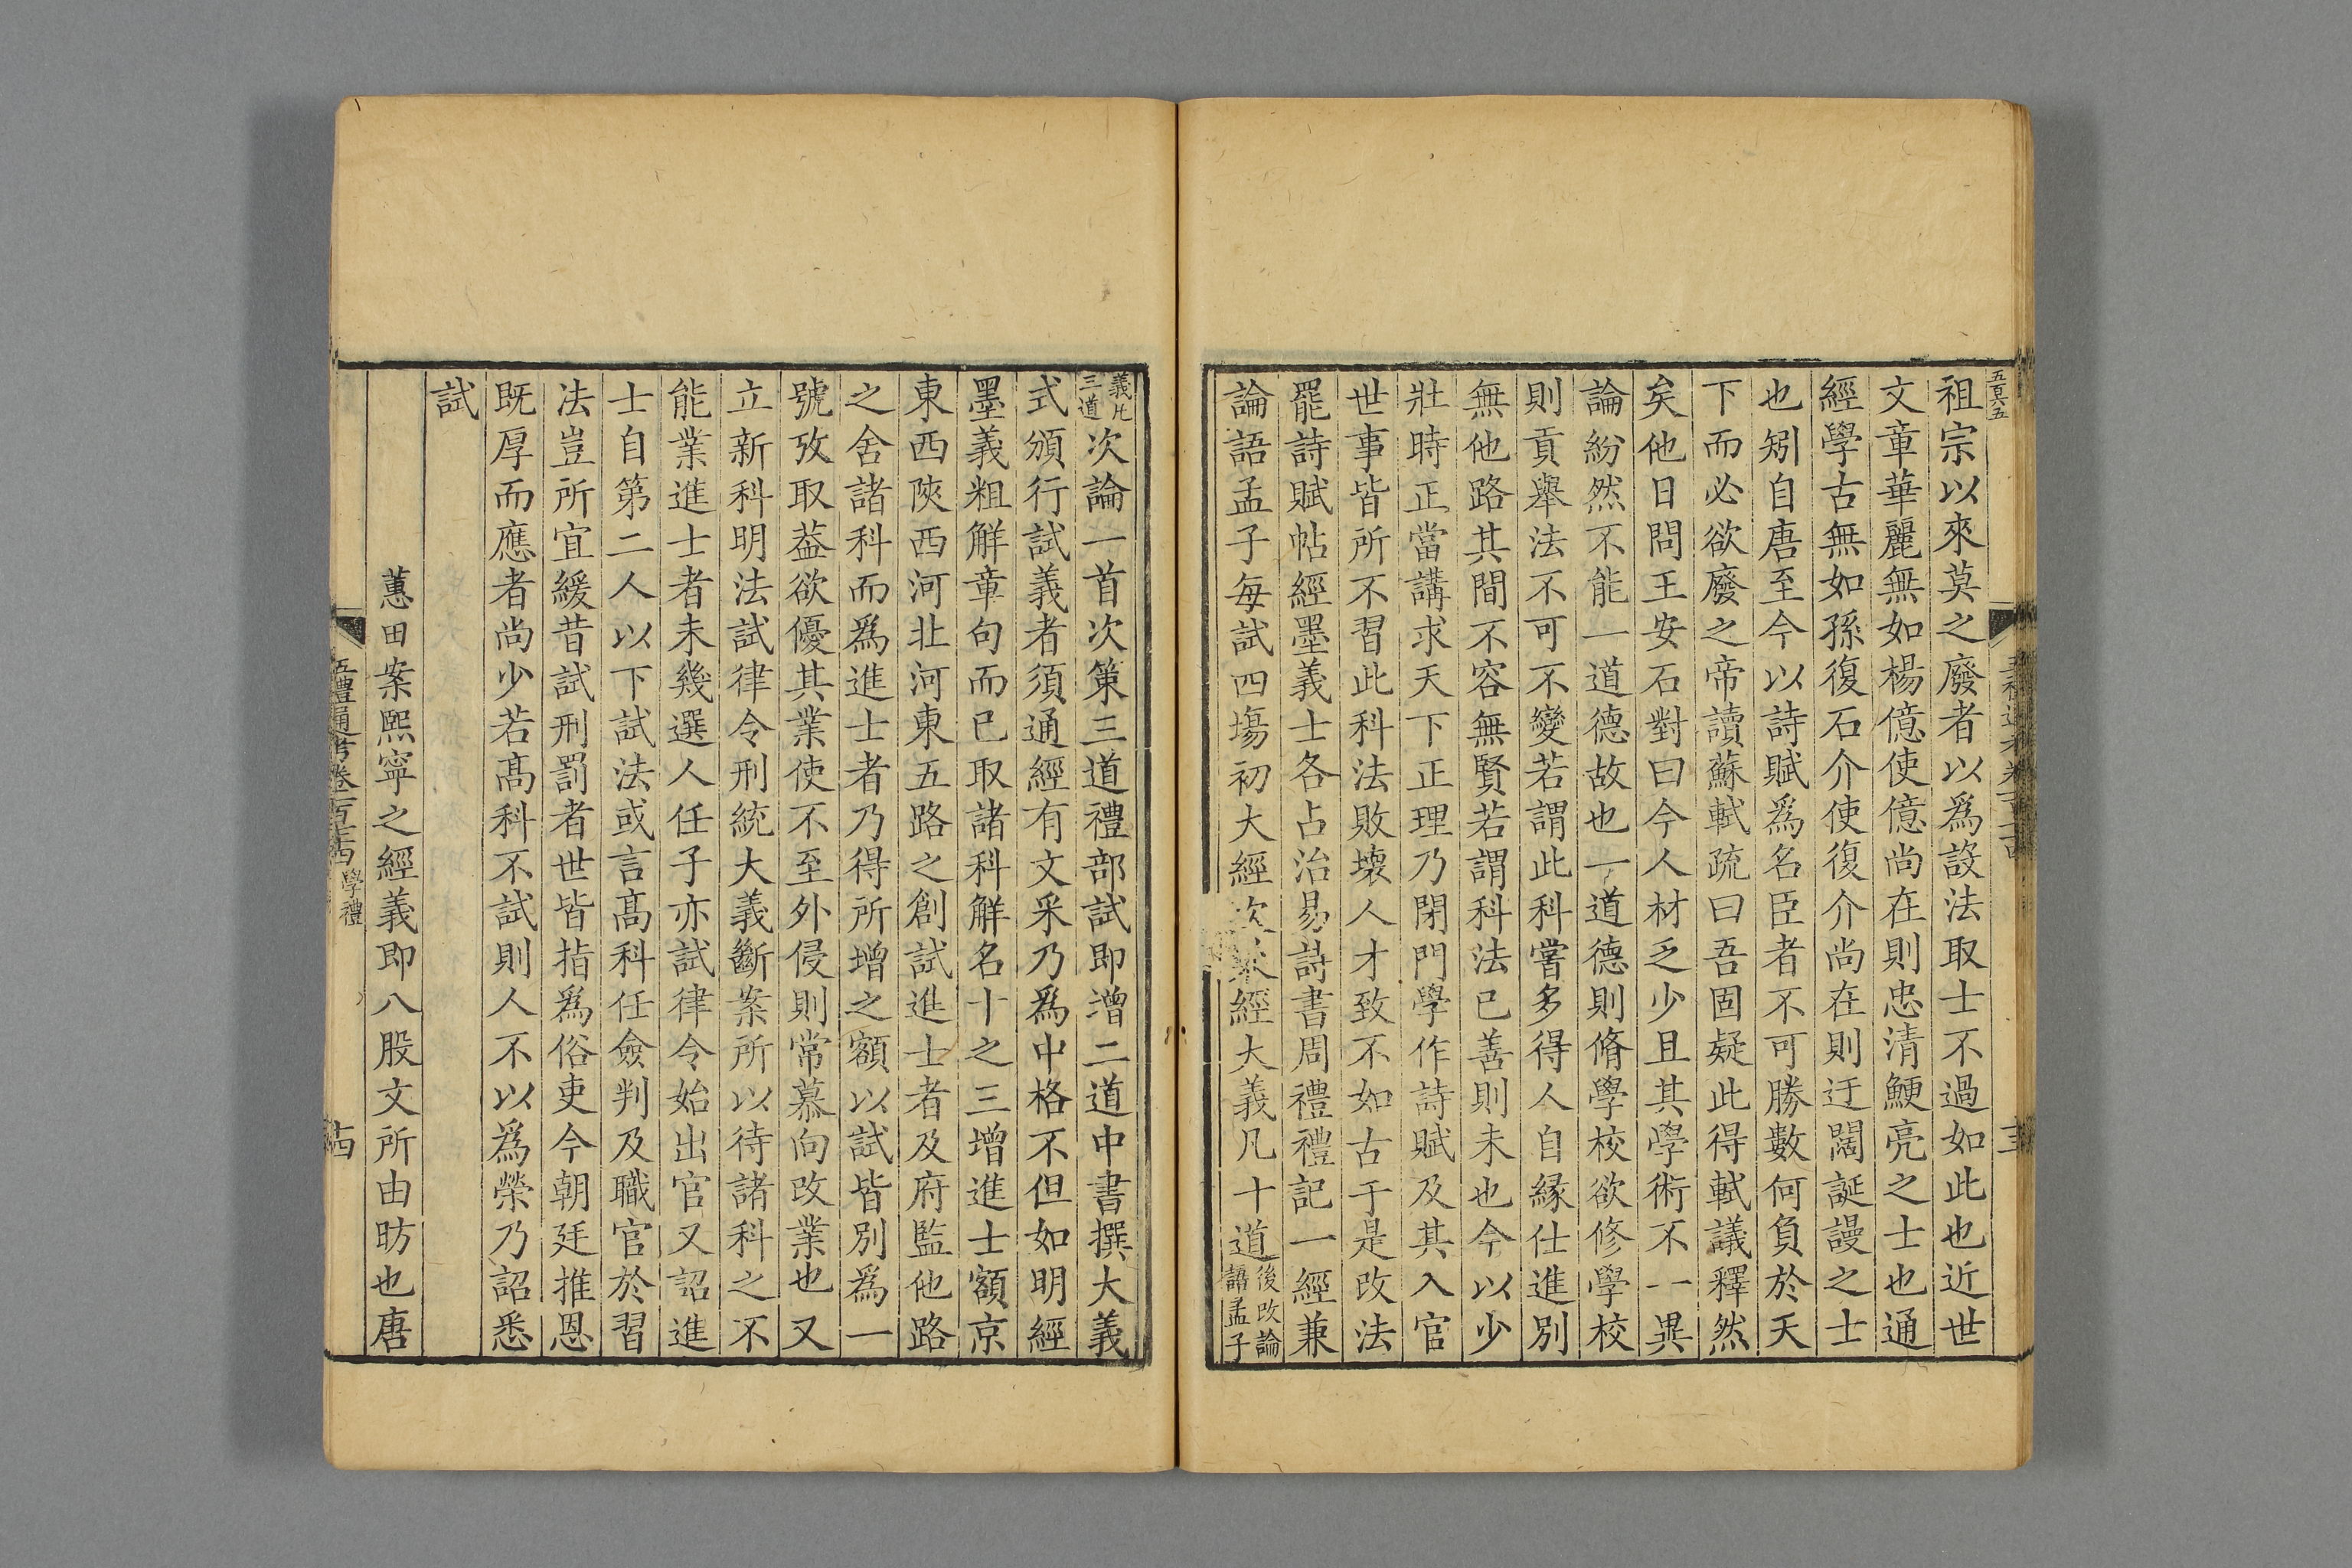 五頁五
祖宗以來莫之廢者以爲設法取士不過如此也近世
文章華麗無如楊億使億尚在則忠清鯁亮之士也通
經學古無如孫復石介使復介尚在則迂闊誕謾之士
也矧自唐至今以詩賦爲名臣者不可勝數何負於天
下而必欲廢之帝讀蘇軾疏曰吾固疑此得軾議釋然
矣他日問王安石對曰今人材乏少且其學術不一異
論紛然不能一道德故也一道德則脩學校欲修學校
則貢舉法不可不變若謂此科嘗多得人自緣仕進別
無他路其間不容無賢若謂科法已善則未也今以少
壯時正當講求天下正理乃閉門學作詩賦及其入官
世事皆所不習此科法敗壞人才致不如古于是改法
罷詩賦帖經墨義士各占治易詩書周禮禮記一經兼
論語孟子每試四場初大經次兼經大義凡十道後改論
語孟子
義凡
三道次論一首次策三道禮部試即增二道中書撰大義
式頒行試義者須通經有文采乃爲中格不但如明經
墨義粗解章句而已取諸科解名十之三增進士額京
東西陜西河北河東五路之創試進士者及府監他路
之舍諸科而爲進士者乃得所增之額以試皆別爲一
號攷取葢欲優其業使不至外侵則常慕向改業也又
立新科明法試律令刑統大義斷案所以待諸科之不
能業進士者未幾選人任子亦試律令始出官又詔進
士自第二人以下試法或言髙科任僉判及職官於習
法豈所宜緩昔試刑罰者世皆指爲俗吏今朝廷推恩
既厚而應者尚少若髙科不試則人不以爲榮乃詔悉
試
蕙田案熙寧之經義即八股文所由昉也唐
五禮通考卷一百七十四 學禮